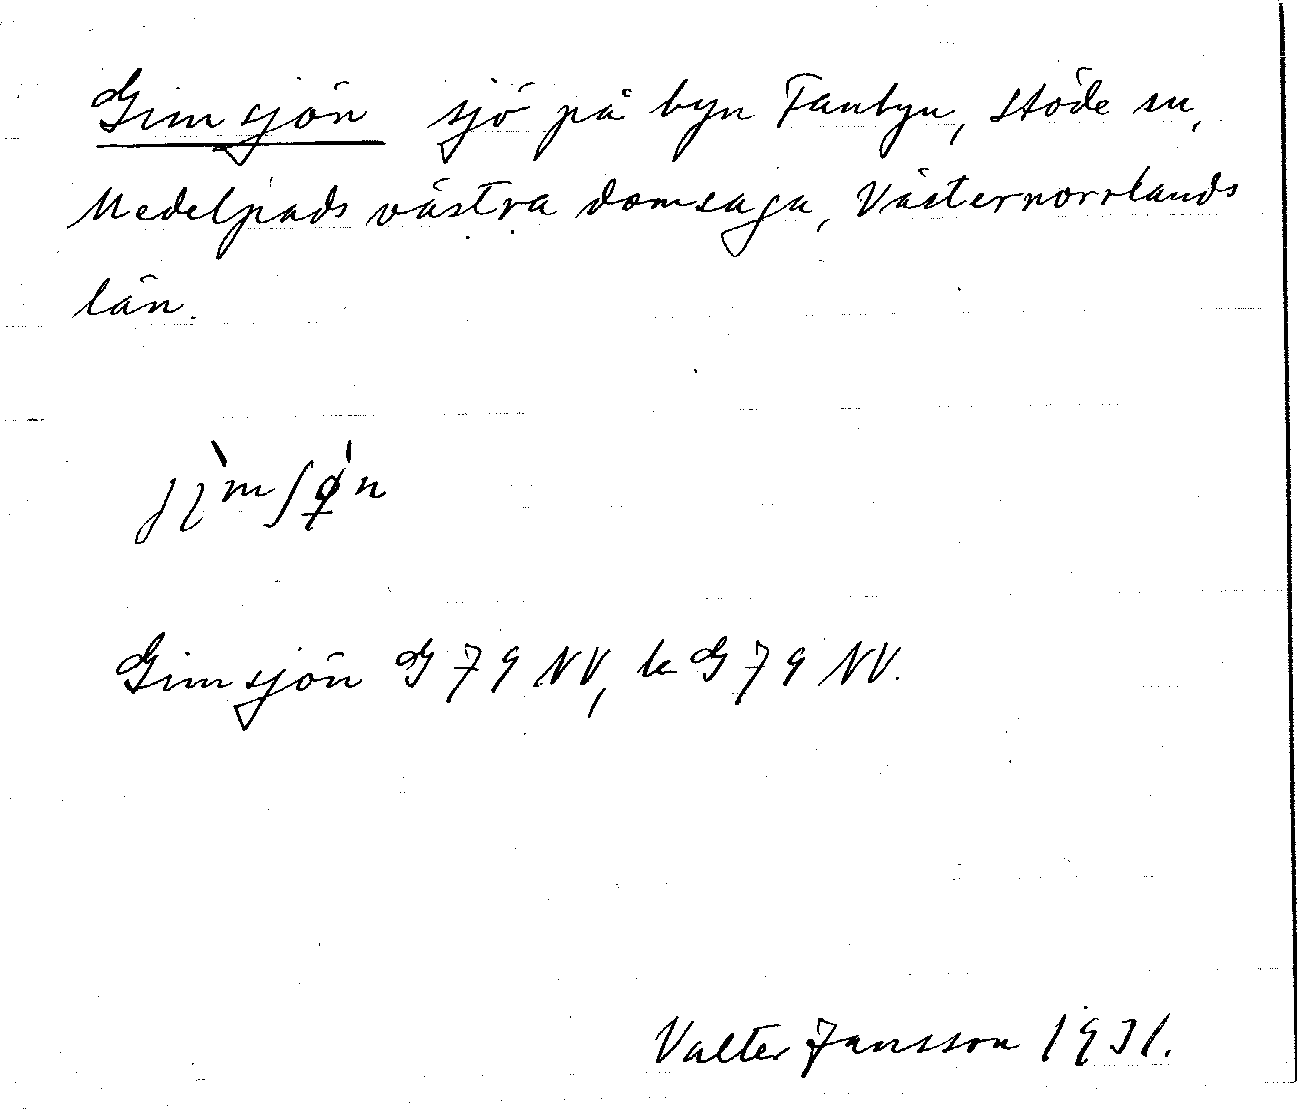 Gimsjön sjö på byn Fanbyn, Stöde sn,
Medelpads västra domsaga, Västernorrlands
län.
Gimsjön G 79 NV, k G 79 NV.
Valter Jansson 1931.